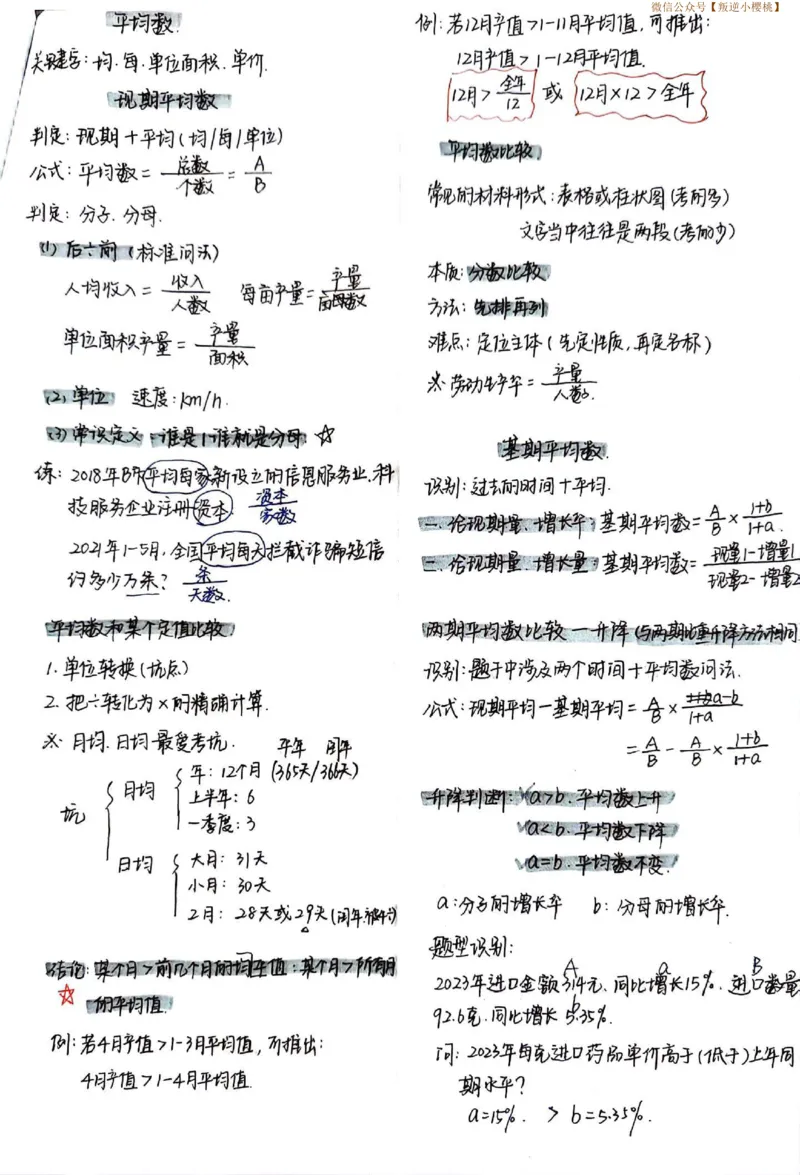 微信公众号【叛逆小樱桃】
平均数
关键字：均.每.单位面积.单价.
现期平均数
判定：现期+平均(均/每/单位)
公式：平均数 = 总数/个数 = A/B
判定：分子.分母.
(1) 后÷前 (标准问法)
人均收入 = 收入/人数 每亩产量 = 产量/亩数
单位面积产量 = 产量/面积
(2) 单位 速度：km/h.
(3) 常识定义 谁是1谁就是分母 ☆
练：2018年B市平均每家新设立的信息服务业.科
技服务企业注册资本. 资本/家数
2021年1-5月,全国平均每天拦截诈骗短信
约多少万条? 条/天数.
平均数和某个定值比较
1. 单位转换(坑点)
2. 把÷转化为×的精确计算.
※ 月均.日均最爱考坑. 平年 闰年
坑
月均
年：12个月 (365天/366天)
上半年：6
一季度：3
日均
大月：31天
小月：30天
2月：28天或29天
结论：某个月>前几个月的均值：某个月>所有月
☆ 的平均值.
例：若4月产值>1-3月平均值, 可推出：
4月产值>1-4月平均值.
例：若12月产值>1-11月平均值,可推出：
12月产值>1-12月平均值.
12月>全年/12 或 12月×12>全年
平均数比较
常见的材料形式：表格或柱状图(考的多)
文字当中往往是两段(考的少)
本质：分数比较
方法：先排再列
难点：定位主体(先定性质,再定名称)
※ 劳动生产率 = 产量/人数.
基期平均数.
识别：过去的时间+平均.
一.给现期量.增长率：基期平均数 = A/B × 1+b/1+a.
二.给现期量.增长量：基期平均数 = 现量1-增量1/现量2-增量2
两期平均数比较 — 升降 (与两期比重升降方法相同)
识别：题干中涉及两个时间+平均数问法.
公式：现期平均-基期平均 = A/B × a-b/1+a
= A/B - A/B × 1+b/1+a
升降判断：√a>b.平均数上升
√a<b.平均数下降
√a=b.平均数不变.
a：分子的增长率 b：分母的增长率.
题型识别：
A a B
2023年进口金额314元、同比增长15%.进口数量
b
92.6克.同比增长5.35%.
问：2023年每克进口药品单价高于(低于)上年同
期水平?
a=15%. > b=5.35%.